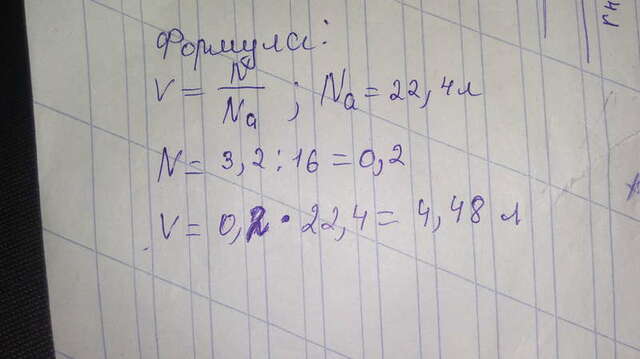 Формула:
V = N/Na ; Na = 22,4л
N = 3,2 : 16 = 0,2
V = 0,2 · 22,4 = 4,48 л